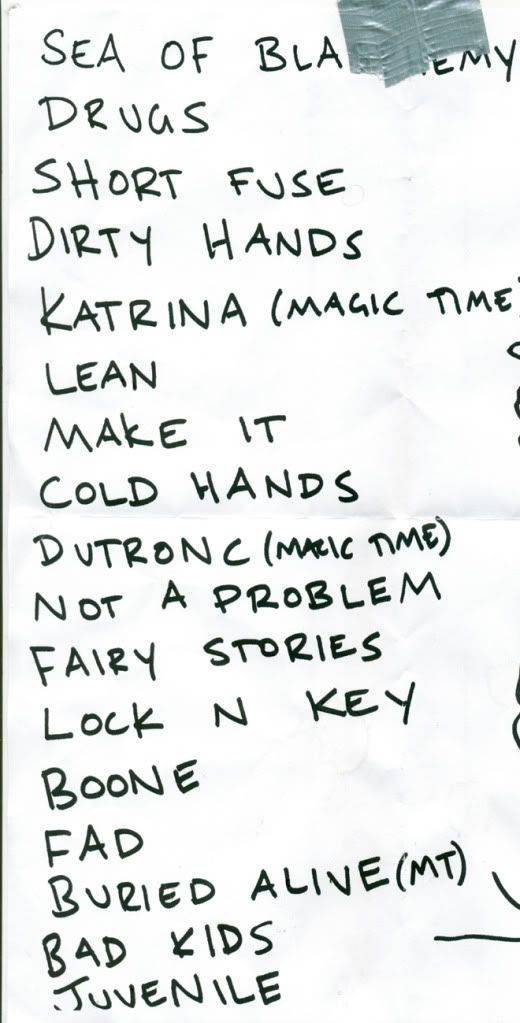 SEA OF BLA EMY
DRUGS
SHORT FUSE
DIRTY HANDS
KATRINA (MAGIC TIME)
LEAN
MAKE IT
COLD HANDS
DUTRONC (MAGIC TIME)
NOT A PROBLEM
FAIRY STORIES
LOCK N KEY
BOONE
FAD
BURIED ALIVE (MT)
BAD KIDS
JUVENILE